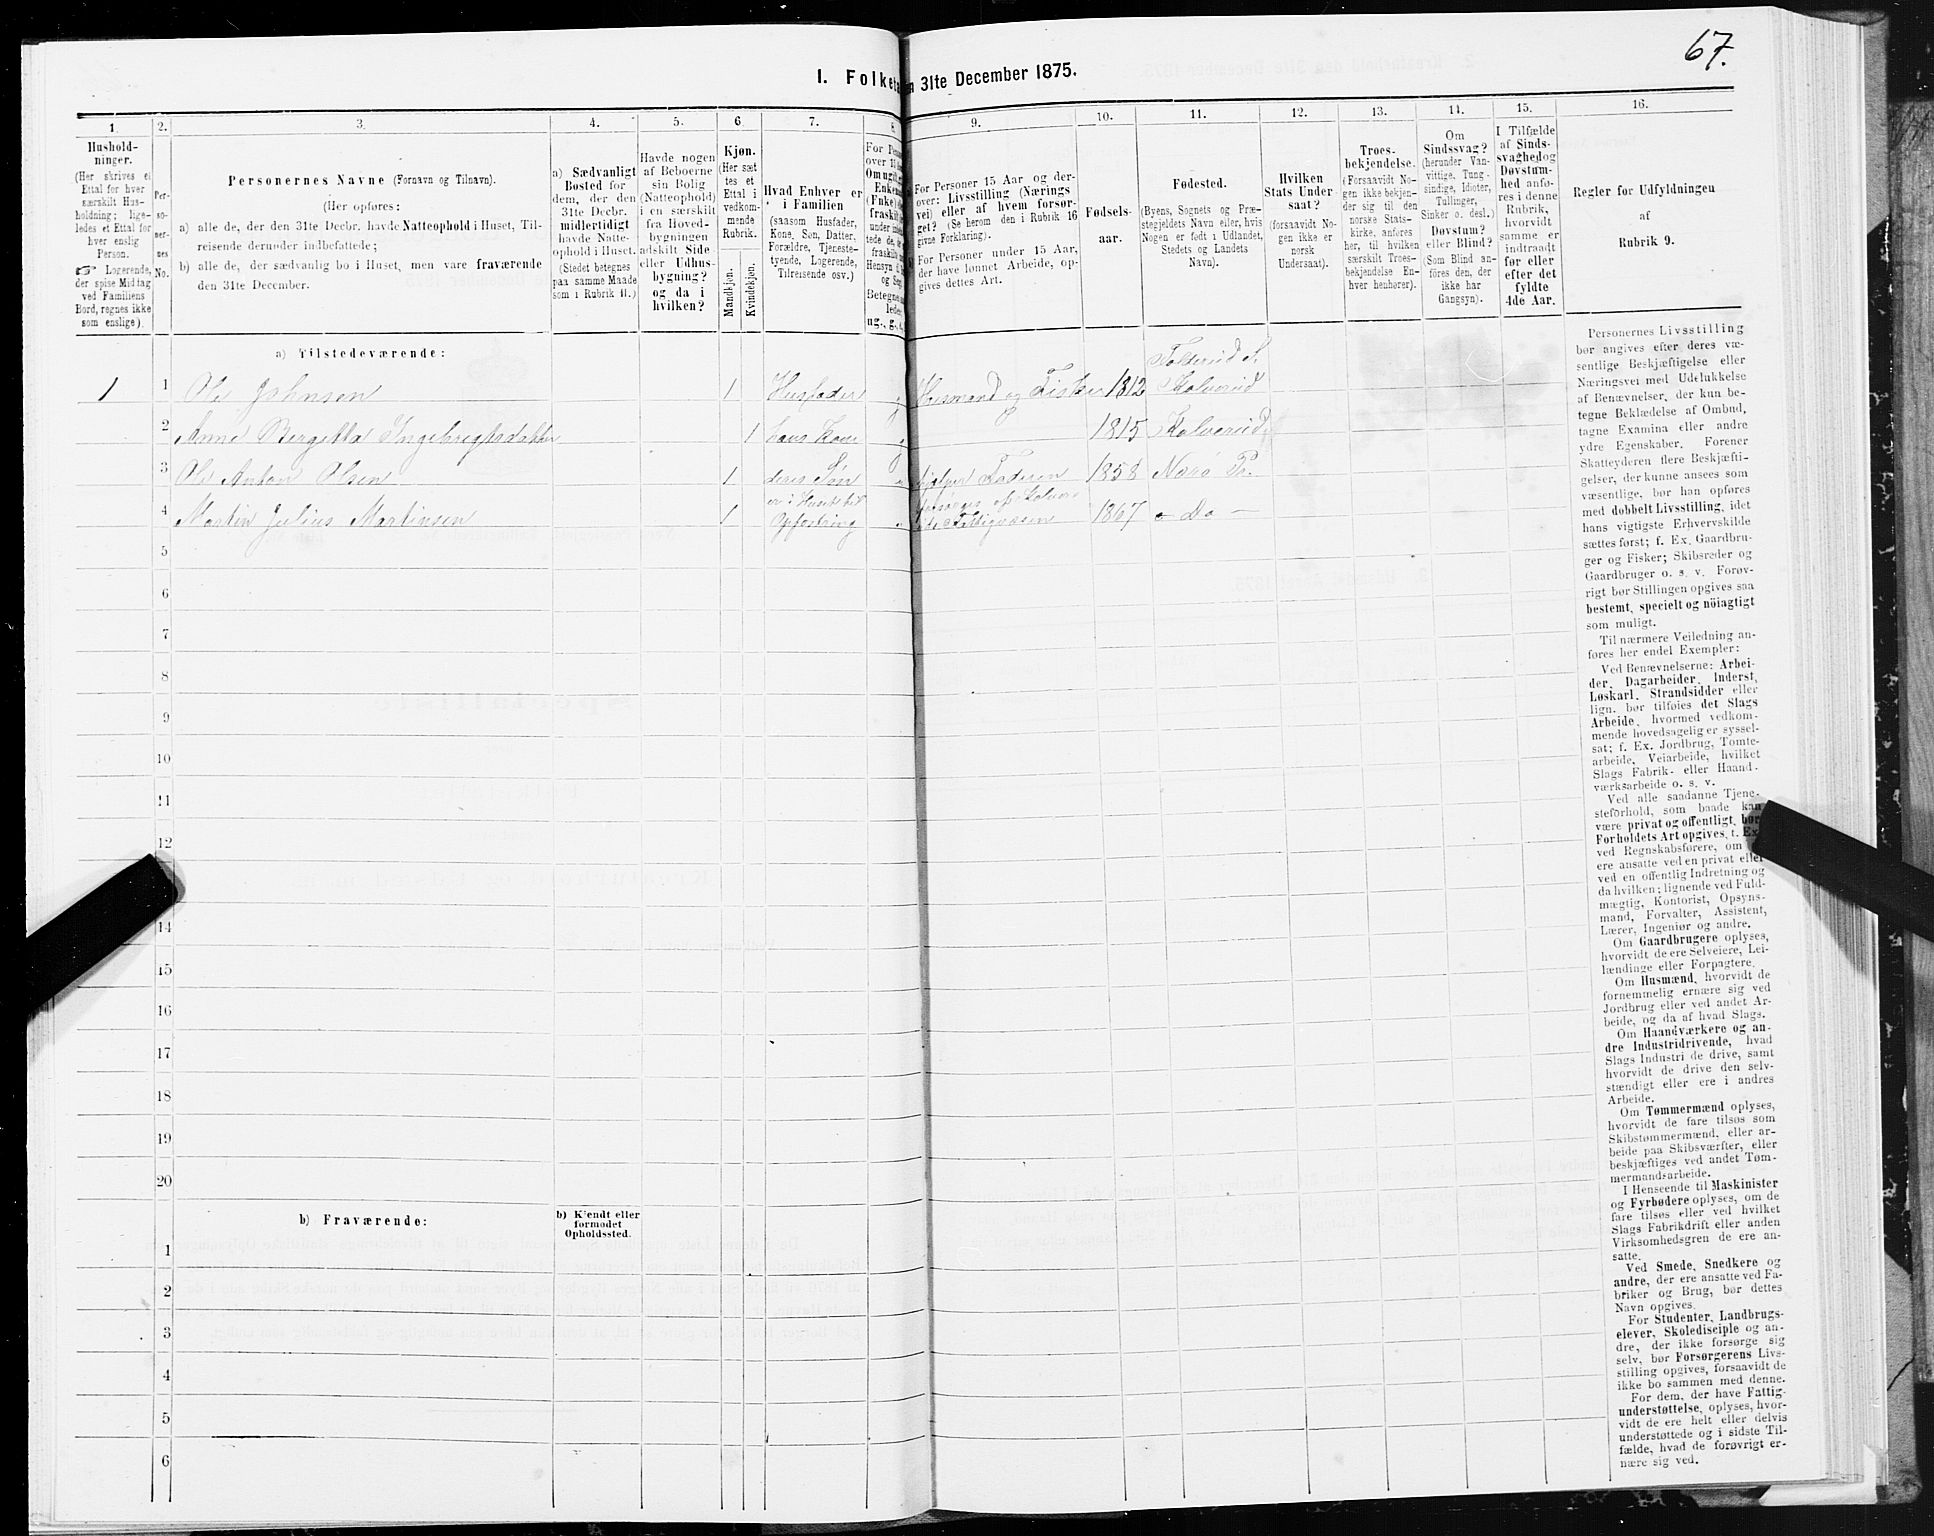 67.
I. Folketa
n 31te December 1875.
1.
2.
3.
4.
5.
6.
7.
8.
9.
10.
11.
12.
13.
14.
15.
16.
Hushold-
ninger.
(Her skrives et
Ettal for hver
særskilt Hus-
holdning; lige-
ledes et Ettal for
hver enslig
Person.
☞ Logerende,
der spise Middag
ved Familiens
Bord, regnes ikke
som enslige).
Per-
so-
ner-
nes
No.
Personernes Navne (Fornavn og Tilnavn).
(Her opføres:
a) alle de, der den 31te Decbr. havde Natteophold i Huset, Til-
reisende derunder indbefattede;
b) alle de, der sædvanlig bo i Huset, men vare fraværende
den 31te December.
a) Sædvanligt
Bosted for
dem, der den
31te Decbr.
midlertidigt
havde Natte-
ophold i Huset.
(Stedet betegnes
paa samme Maade
som i Rubrik 11.)
Havde nogen
af Beboerne
sin Bolig
(Natteophold)
i en særskilt
fra Hoved-
bygningen
adskilt Side
eller Udhus-
bygning?
og da i
hvilken?
Kjøn.
(Her sæt-
tes et
Ettal i
vedkom-
mende
Rubrik.
Mandkjøn.
Kvindekjøn.
Hvad Enhver er
i Familien
(saasom Husfader,
Kone, Søn, Datter,
Forældre, Tjeneste-
tyende, Logerende,
Tilreisende osv.)
For Pers
over 15
Om ugift,
Enke
(Fnke)
fraskilt
under
tede de,
fraskilt
Hensyn i
og Seng
Betegnes
ledes
ug., g.,
For Personer 15 Aar og der-
over: Livsstilling (Nærings
vei) eller af hvem forsør-
get? (Se herom den i Rubrik 16
givne Forklaring).
For Personer under 15 Aar,
der have lønnet Arbeide, op-
gives dettes Art.
Fødsels-
aar.
Fødested.
(Byens, Sognets og Præ-
stegjeldets Navn eller, hvis
Nogen er født i Udlandet,
Stedets og Landets
Navn).
Hvilken
Stats Under-
saat?
(forsaavidt No-
gen ikke er
norsk
Undersaat).
Troes-
bekjendelse.
(Forsaavidt No-
gen ikke bekjen-
der sig til den
norske Stats-
kirke, anføres
her, til hvilken
særskilt Troes-
bekjendelse En-
hver henhører).
Om
Sindssvag?
(herunder Van-
vittige, Tung-
sindige, Idioter,
Tullinger,
Sinker o. desl.)
Døvstum?
eller Blind?
(Som Blind an-
føres den, der
ikke har
Gangsyn).
I Tilfælde
af Sinds-
svaghed og
Døvstum-
hed anfø-
res i denne
Rubrik,
hvorvidt
samme er
indtraadt
før eller
efter det
fyldte
4de Aar.
Regler for Udfyldningen
af
Rubrik 9.
a) Tilstedeværende:
1
1 Ole Johnsen 1 Husfader g Husmand og Fisker 1812 Foldereid S. Kolvereid
2 Anne Bergitta Ingebrigtsdatter 1 hans Kone g 1815 Kolvereid
3 Ole Anton Olsen 1 deres Søn u hjelper Faderen 1858 Nærø Pr.
4 Martin Julius Martinsen 1 er i Huset til Opfostring u forsørges af Fattigvæsen 1867 – Do –
5
6
7
8
9
10
11
12
14
15
16
17
18
19
20
b) Fraværende:
b) Kjendt eller
formodet
Opholdssted.
1
2
3
4
5
6
Personernes Livsstilling
bør angives efter deres væ-
sentlige Beskjæftigelse eller
Næringsvei med Udelukkelse
af Benævnelser, der kun be-
tegne Beklædelse af Ombud,
tagne Examina eller andre
ydre Egenskaber. Forener
Skatteyderen flere Beskjæfti-
gelser, der kunne ansees som
væsentlige, bør han opføres
med dobbelt Livsstilling, idet
hans vigtigste Erhvervskilde
sættes først; f. Ex. Gaardbru-
ger og Fisker; Skibsreder og
Gaardbruger o. s. v. Forøv-
rigt bør Stillingen opgives saa
bestemt, specielt og nöiagtigt
som muligt.
Til nærmere Veiledning an-
føres her endel Exempler:
Ved Benævnelserne: Arbei-
der, Dagarbeider, Inderst,
Løskarl, Strandsidder eller
lign. bør tilføies det Slags
Arbeide, hvormed vedkom-
mende hovedsagelig er syssel-
sat; f. Ex. Jordbrug, Tomte-
arbeide, Veiarbeide, hvilket
Slags Fabrik- eller Haand-
værksarbeide o. s. v.
Ved alle saadanne Tjene-
steforhold, som baade kan
være privat og offentligt, bør
Forholdets Art opgives, t. Ex.
ved Regnskabsførere, om
ere ansatte ved en privat eller
ved en offentlig Indretning og
da hvilken; lignende ved Fuld-
mægtig, Kontorist, Opsyns-
mand, Forvalter, Assistent,
Lærer, Ingeniør og andre.
Om Gaardbrugere oplyses,
hvorvidt de ere Selveiere, Lei-
lændinge eller Forpagtere.
Om Husmænd, hvorvidt de
fornemmelig ernære sig ved
Jordbrug eller ved andet Ar-
beide, og da af hvad Slags.
Om Haandværkere og an-
dre Industridrivende, hvad
Slags Industri de drive, samt
hvorvidt de drive den selv-
stændigt eller ere i andres
Arbeide.
Om Tømmermænd oplyses,
hvorvidt de fare tilsøs som
Skibstømmermænd, eller ar-
beide paa Skibsværfter, eller
beskjæftiges ved andet Tøm-
mermandsarbeide.
I Henseende til Maskinister
og Fyrbødere oplyses, om de
fare tilsøs eller ved hvilket
Slags Fabrikdrift eller anden
Virksomhedsgren de ere an-
satte.
Ved Smede, Snedkere og
andre, der ere ansatte ved Fa-
briker og Brug, bør dettes
Navn opgives.
For Studenter, Landbrugs-
elever, Skoledisciple og an-
dre, der ikke forsørge sig
selv, bør Forsørgerens Livs-
stilling opgives, forsaavidt de
ikke bo sammen med denne.
For dem, der have Fattig-
understøttelse, oplyses, hvor-
vidt de ere helt eller delvis
understøttede og i sidste Til-
fælde, hvad de forøvrigt er-
nære sig ved.